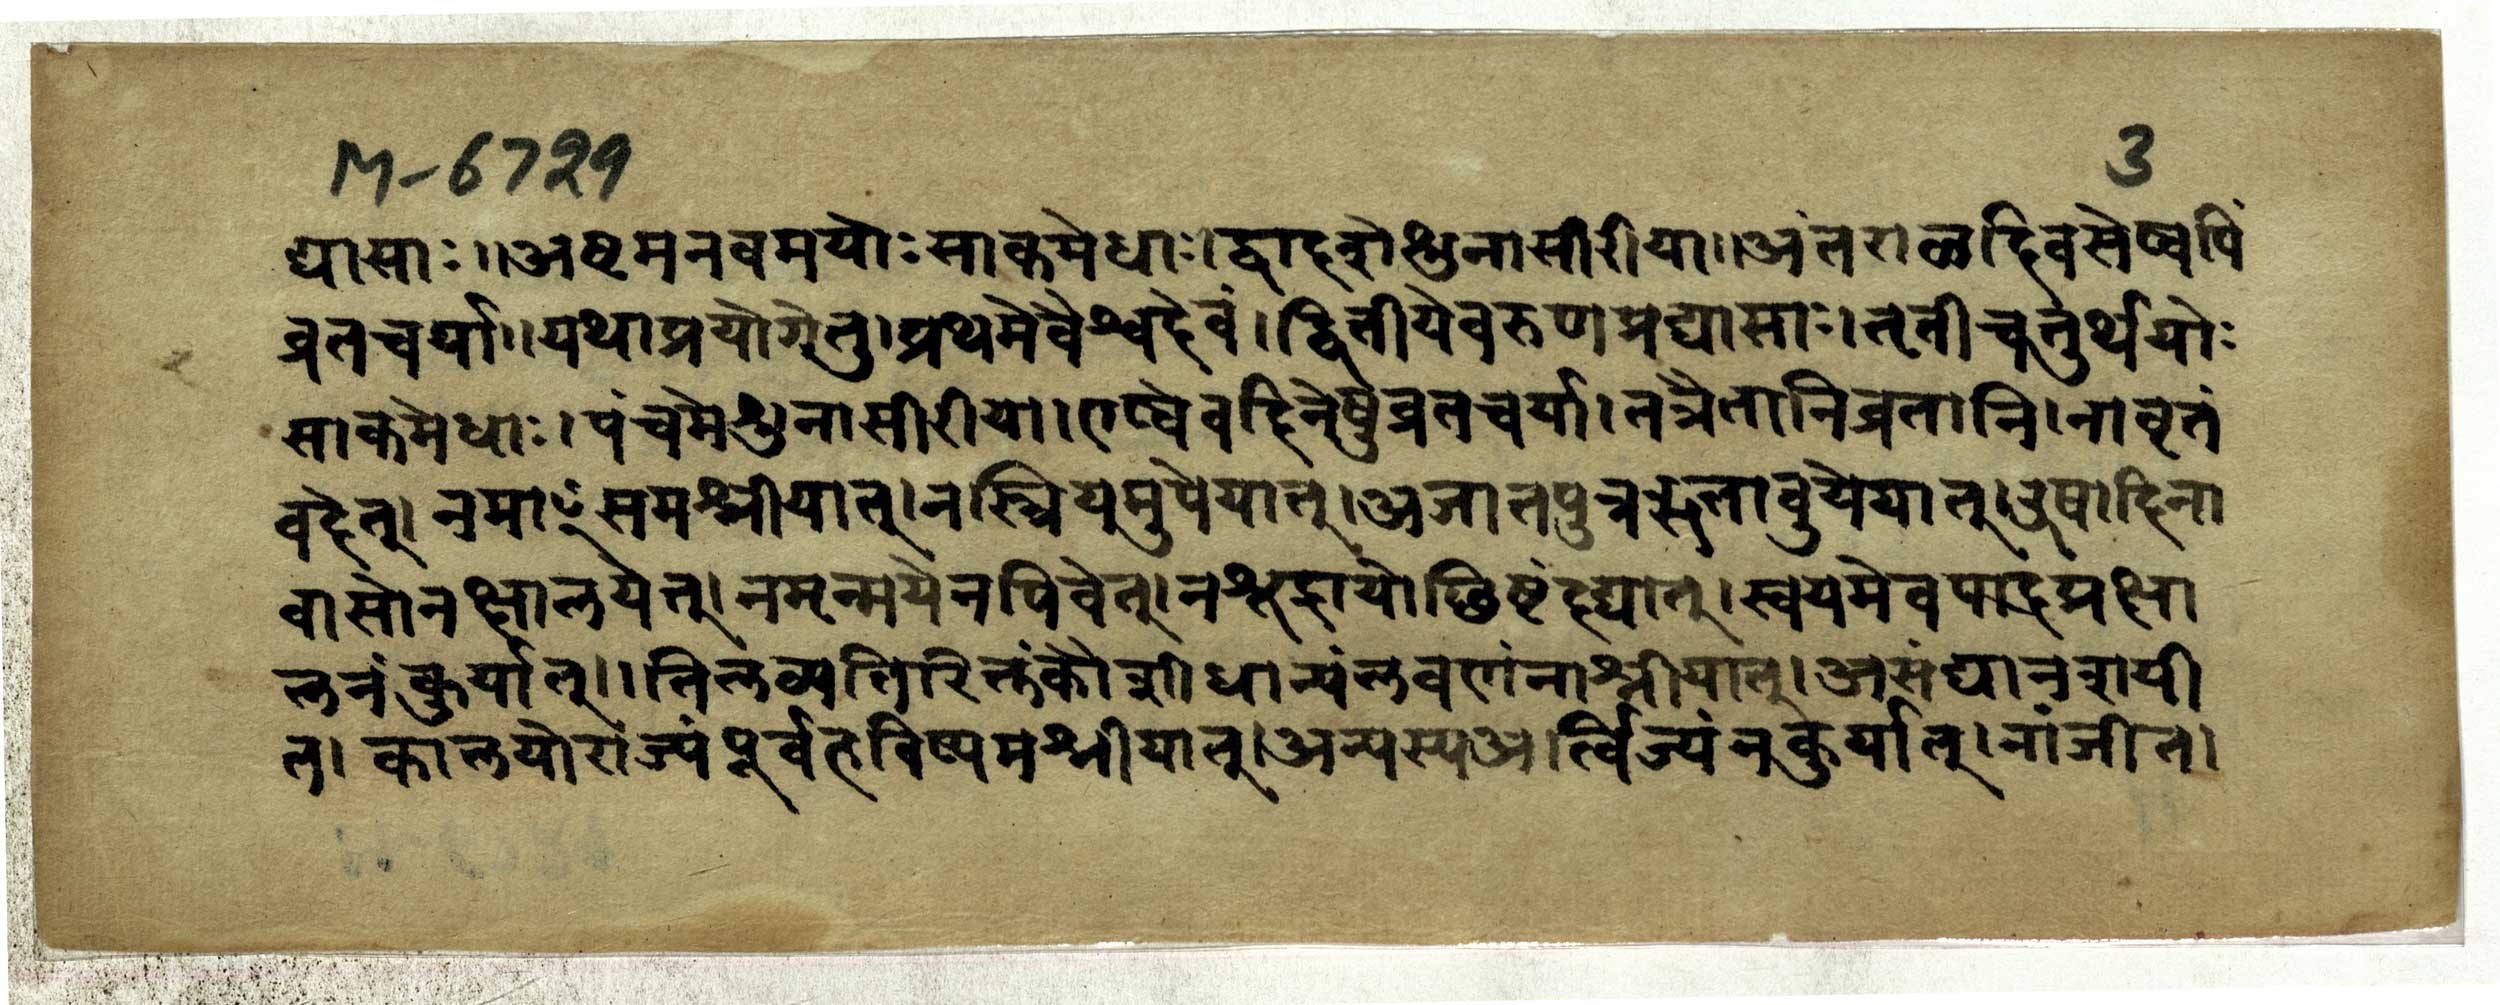 M-6729
3
घासाः॥अष्टमनवमयोःसाकमेधाः।द्वादशेशुनासीरीया॥अंतराळदिवसेष्वपिं
व्रतचर्या॥यथाप्रयोगेतु।प्रथमेवैश्वदेवं।द्वितीयेवरुणप्रघासाः।तृतीचतुर्थयोः
साकमेधाः।पंचमेशुनासीरीया।एष्वेवदिनेषुव्रतचर्या।तत्रैतानिव्रतानि।नावृतं
वदेत्।नमाꣳसमश्नीयात्।नस्त्रियमुपेयात्।अजातपुत्रऋतावुपेयात्।उषादिना
वासोनक्षालयेत्।नमृन्मयेनपिवेत्।नश्शूद्रायोछिष्टंदद्यात्।स्वयमेवपादप्रक्षा
लनंकुर्यात्।।तिलव्यतिरिक्तंकोशीधान्यंलवणंनाश्नीयात्।असंधानशायी
त।कालयोराज्यंपूर्वहविष्यमश्नीयात्।अन्यस्यआर्त्विज्यंनकुर्यात्।नांजीत।